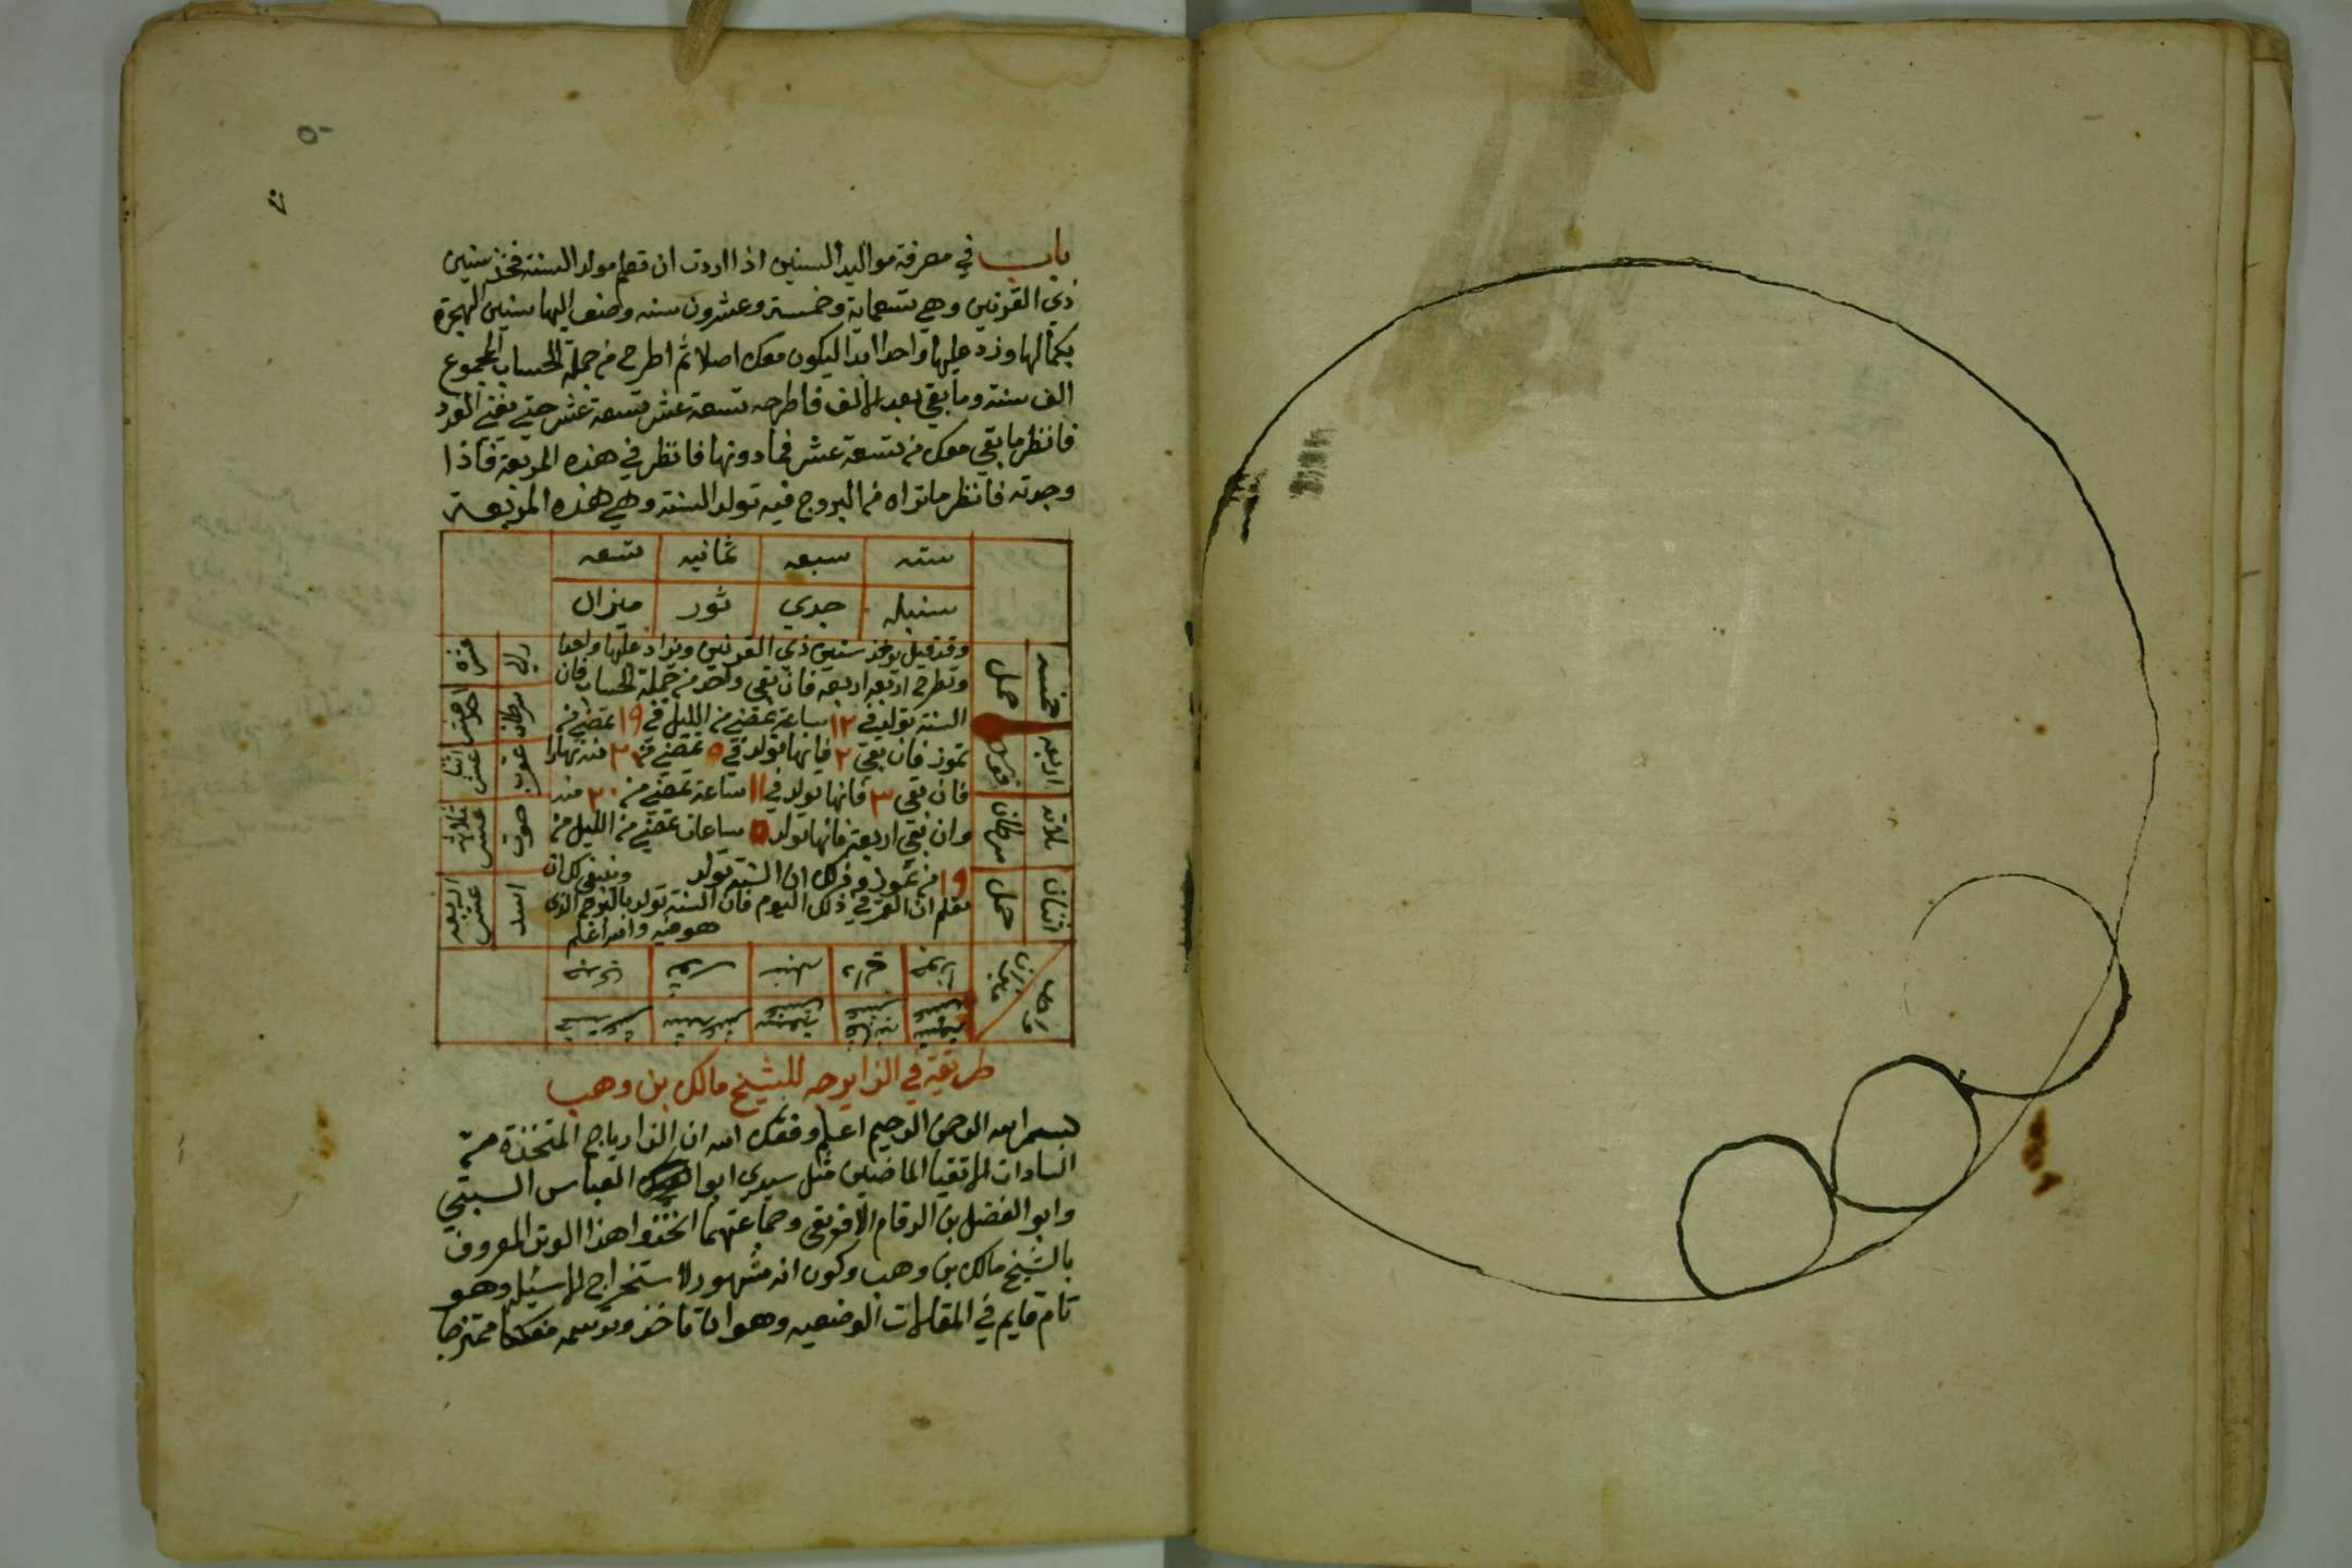 باب في معرفة مواليد السنين اذا اردت ان تعلم مولد السنة فخذ سنين
ذي القرنين وهي تسعماية وخمسة وعشرون سنه وضف اليها سنين الهجرة
بكمالها وزد عليها واحدا ابدا ليكون معك اصلا ثم اطرح من جملة الحساب المجموع
الف سنة وما بقي بعد الالف فاطرحه تسعة عشر تسعة عشر حتي يفني العدد
فانظر ما بقي معك من تسعة عشر فما دونها فانظر في هذه المربعة فاذا
وجدته فانظر ما تراه من البروج فيه تولد السنة وهي هذه المربعة
سته سبعه ثمانيه تسعه
سنبله جدي ثور ميزان
خمسه حمل
اربعه قوس
ثلاثه سرطان
اثنان حمل
وقد قيل يوخذ سنين ذي القرنين ويزاد عليها واحدا
وتطرح اربعه اربعه فان بقي واحد من جملة الحساب فان
السنة تولد في ١٢ ساعة تمضي من الليل في ١٩ تمضي من
تموز فان بقي ٢ فانها تولد في ٥ تمضي من ٢٠ منه نهارا
فان بقي ٣ فانها تولد في ١١ ساعة تمضي من ٢٠ منه
وان بقي اربعة فانها تولد ٥ ساعات تمضي من الليل من
١٩ من تموز وذلك ان السنة تولد وينبغي لك ان
تعلم ان القمر في ذلك اليوم فان السنة تولد بالبرج الذي
هو فيه والله اعلم
عشره دلي
احد عشر سرطان
اثنا عشر عقرب
ثلاثة عشر حوت
اربعة عشر اسد
طريقة في الزايرجه للشيخ مالك بن وهب
بسم الله الرحمن الرحيم اعلم وفقك الله ان الزارياج المتخذة من
السادات الاتقيا الماضيين مثل سيدي ابوا العباس السبتي
وابو الفضل بن الرقام الافريقي وجماعتهما اتخذوا هذا الوتر المعروف
بالشيخ مالك بن وهب وكون انه مشهور لاستخراج الاسئله وهو
تام قايم في المقالات الوضعيه وهو ان تاخذ وترسمه ممتزجا